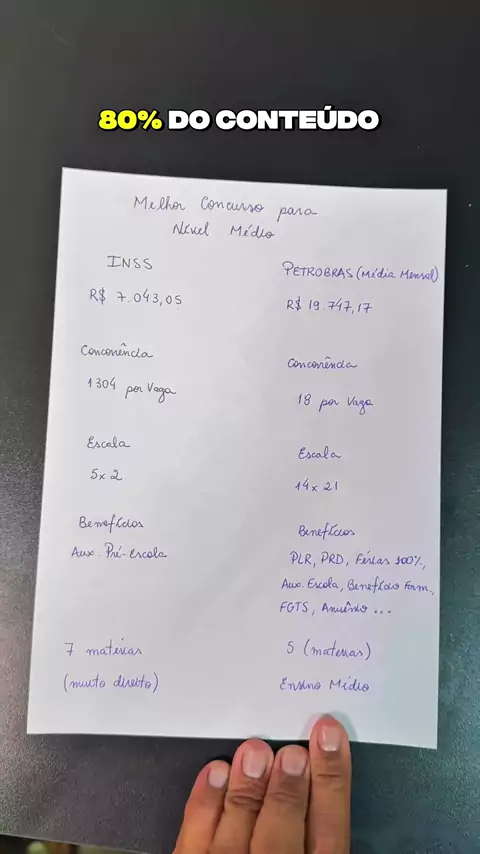 80% DO CONTEÚDO
Melhor Concurso para
Nível Médio
INSS
R$ 7.043,05
Concorrência
1304 por Vaga
Escala
5x2
Benefícios
Aux. Pré-Escola
7 matérias
(muito direito)
PETROBRAS (Média Mensal)
R$ 19.747,17
Concorrência
18 por Vaga
Escala
14x21
Benefícios
PLR, PRD, Férias 100%,
Aux. Escola, Benefício Farm.,
FGTS, Anuênio ...
5 (matérias)
Ensino Médio